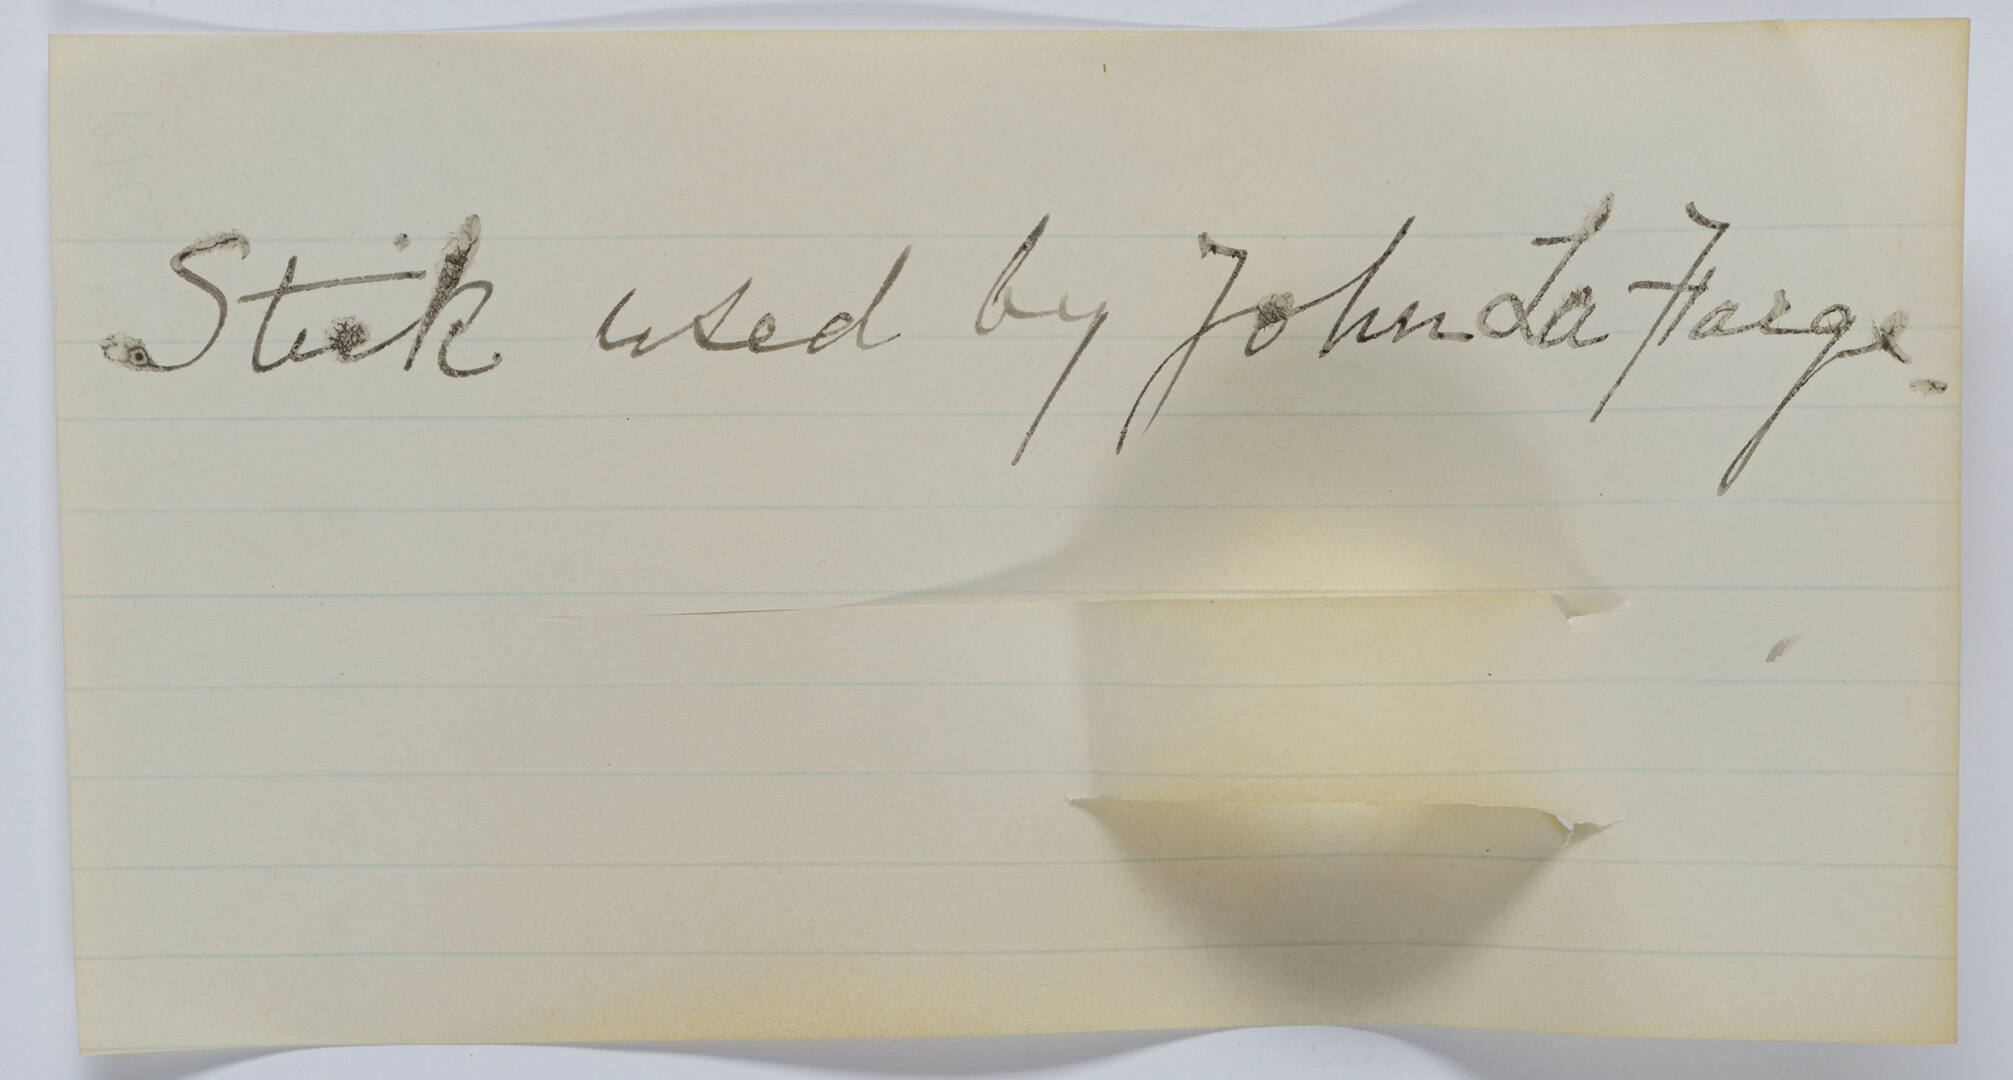 Stick used by John La Farge.